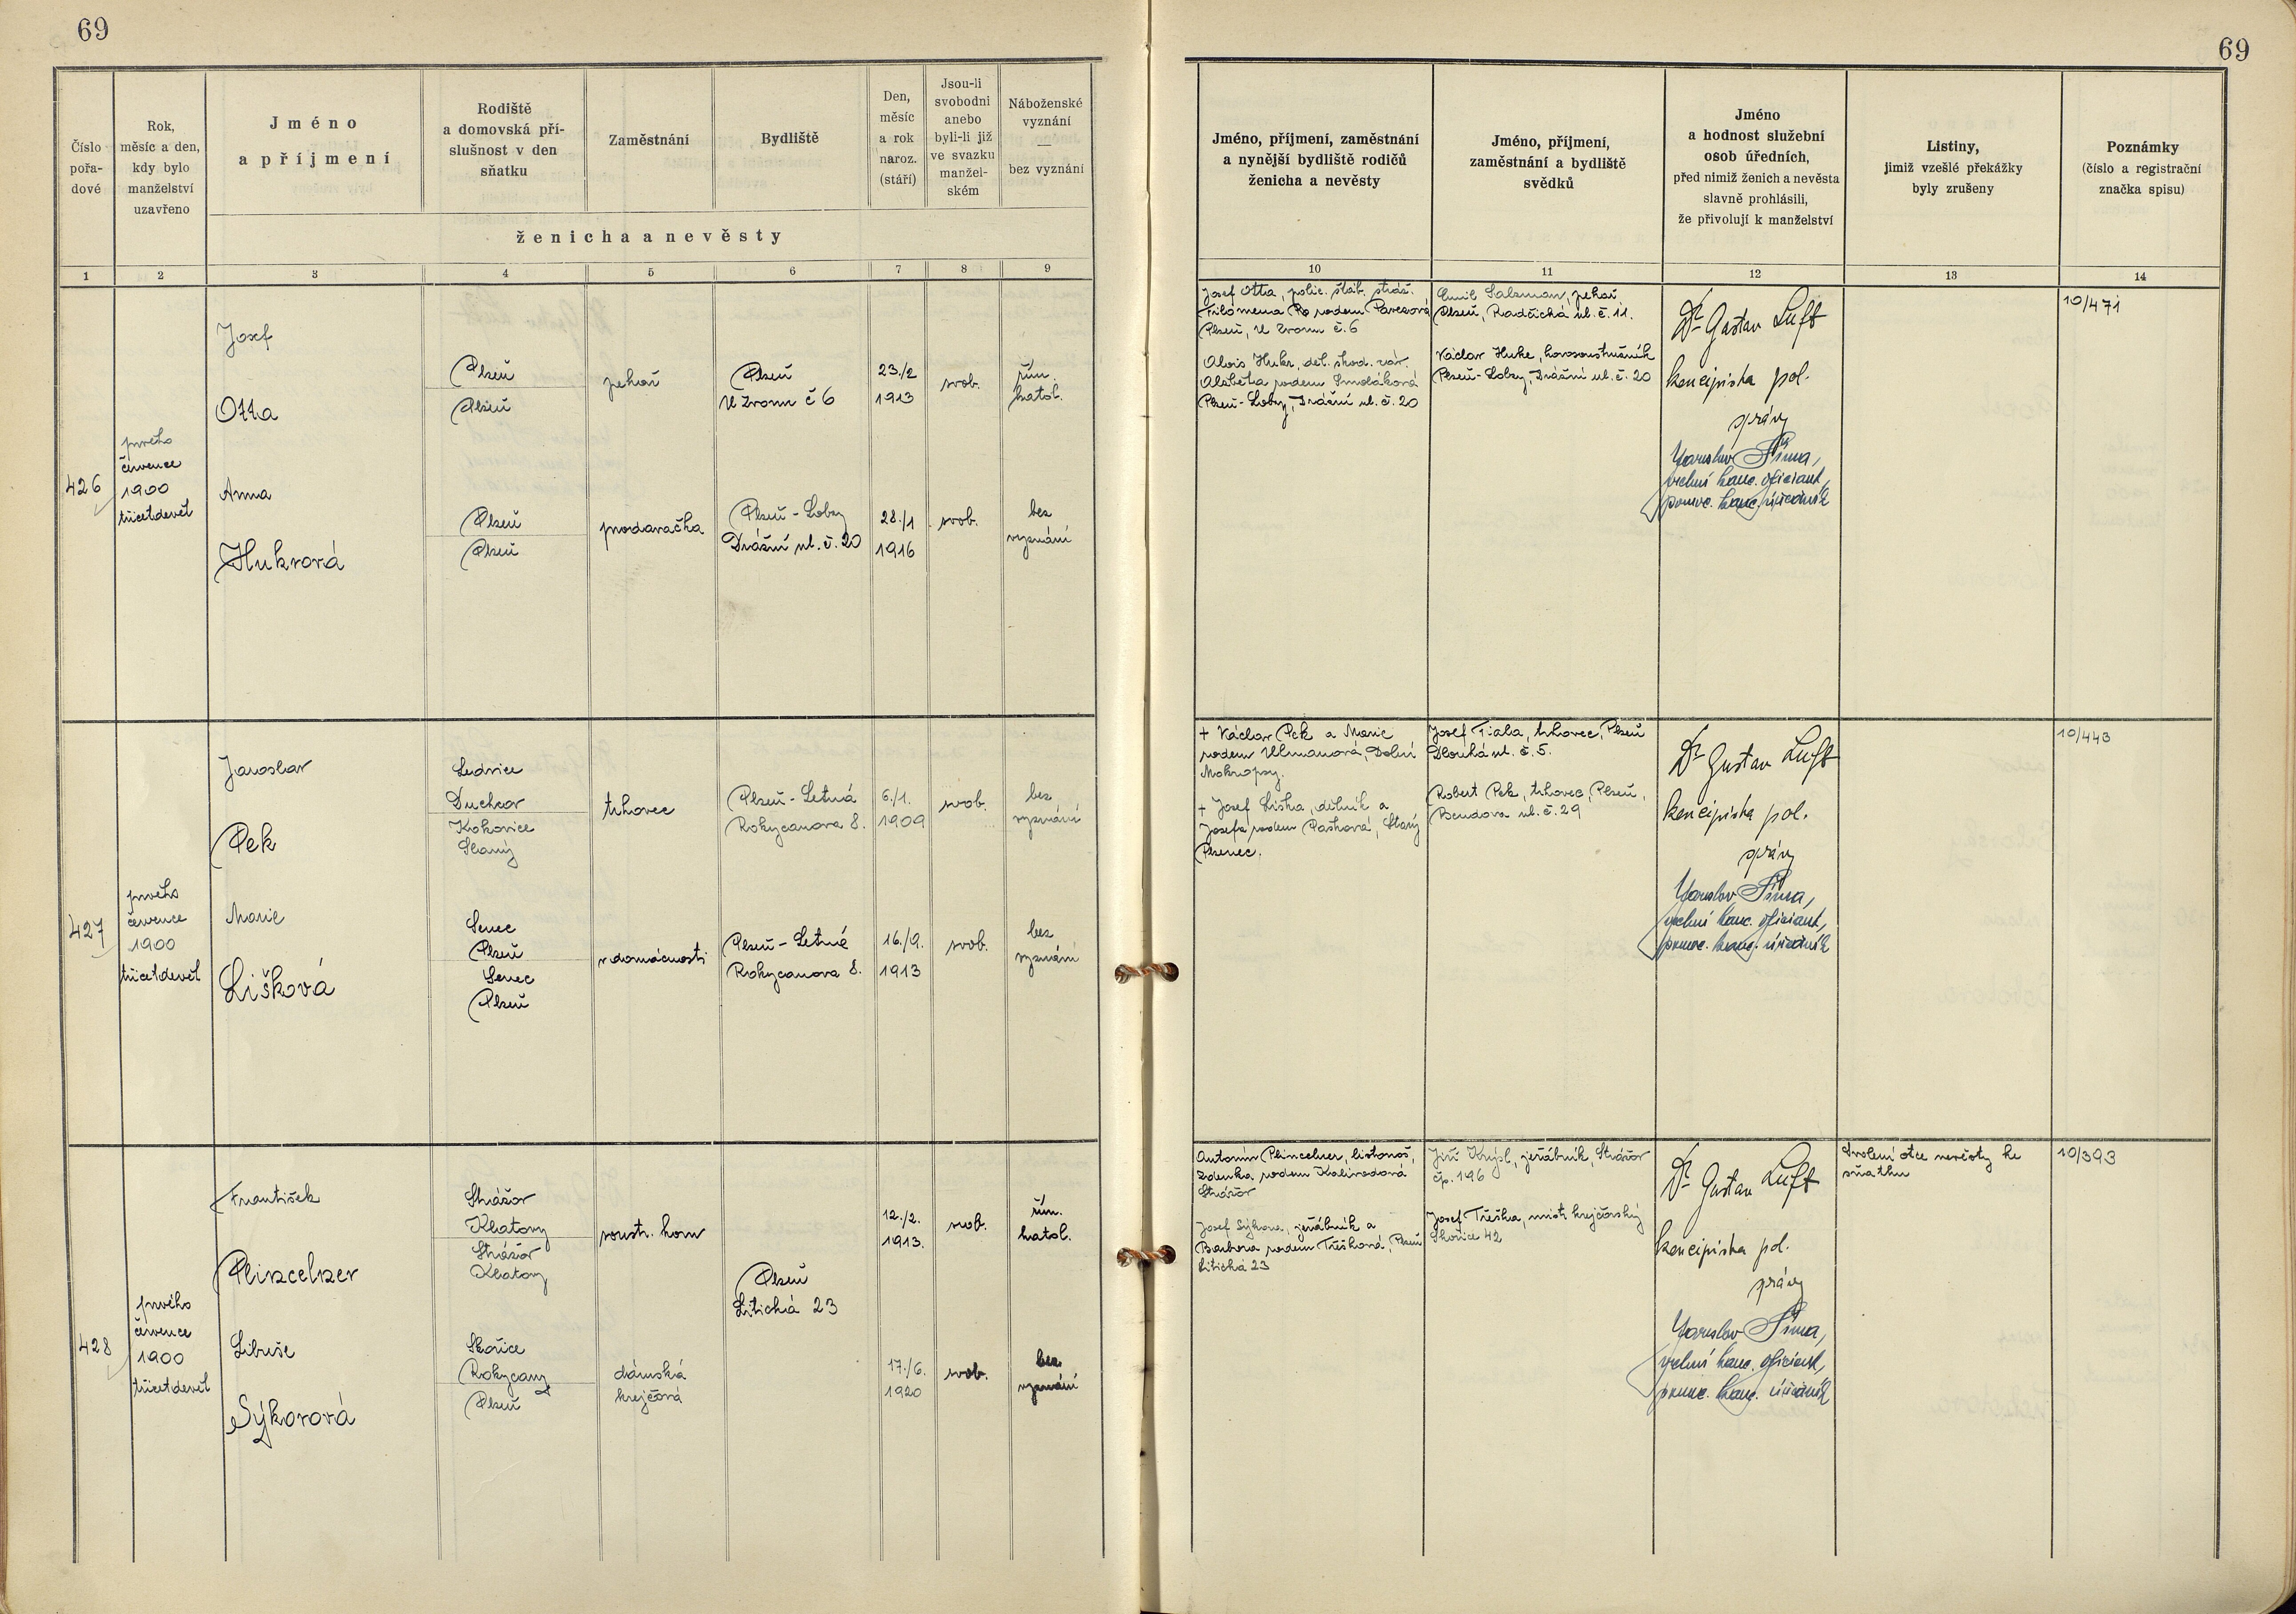 69
69
Číslo
pořa-
dové
Rok,
měsíc a den,
kdy bylo
manželství
uzavřeno
Jméno
a příjmení
Rodiště
a domovská pří-
slušnost v den
sňatku
Zaměstnání
Bydliště
Den,
měsíc
a rok
naroz.
(stáří)
Jsou-li
svobodni
anebo
byli-li již
ve svazku
manžel-
ském
Náboženské
vyznání
—
bez vyznání
ženicha a nevěsty
Jméno, příjmení, zaměstnání
a nynější bydliště rodičů
ženicha a nevěsty
Jméno, příjmení,
zaměstnání a bydliště
svědků
Jméno
a hodnost služební
osob úředních,
před nimiž ženich a nevěsta
slavně prohlásili,
že přivolují k manželství
Listiny,
jimiž vzešlé překážky
byly zrušeny
Poznámky
(číslo a registrační
značka spisu)
1 2 3 4 5 6 7 8 9
10 11 12 13 14
426
prvého
července
1900
třicetdevět
Josef
Otta
Plzeň
Plzeň
pekař
Plzeň
U Zvonu č 6
23./2
1913
svob.
řím.
katol.
Anna
Hukrová
Plzeň
Plzeň
prodavačka
Plzeň - Lobzy
Drážní ul. č. 20
28./1
1916
svob.
bez
vyznání
Josef Otta, polic. štáb. stráž.
Filoména rodem
Plzeň, U Zvonu č. 6
Alois Hukr, děl. škod. záv.
Alžběta rodem Smoláková
Plzeň - Lobzy, Drážní ul. č. 20
Emil Salzman, pekař
Plzeň, Radčická ul. č. 11.
Václav Huke, kovosoustružník
Plzeň - Lobzy, Drážní ul. č. 20
Dr Gustav Luft
koncipista pol.
správy
Jaroslav Šíma,
vrchní kanc. oficiant,
pomoc. kanc. úředník
10/471
427
prvého
července
1900
třicetdevět
Jaroslav
Pek
Ledvice
Duchcov
Kokovice
Slaný
trhovec
Plzeň - Letná
Rokycanova 8.
6./1.
1909
svob.
bez
vyznání
Marie
Lišková
Senec
Plzeň
Senec
Plzeň
v domácnosti
Plzeň - Letná
Rokycanova 8.
16./9.
1913
svob.
bez
vyznání
+ Václav Pek a Marie
rodem Ulmanová, Dolní
Mokropsy.
+ Josef Liška, dělník a
Josefa rodem Pašková, Starý
Plzenec.
Josef Fiala, trhovec, Plzeň
Dlouhá ul. č. 5.
Robert Pek, trhovec, Plzeň,
Bendova ul. č. 29
Dr Gustav Luft
koncipista pol.
správy
Jaroslav Šíma,
vrchní kanc. oficiant,
pomoc. kanc. úředník
10/443
428
prvého
července
1900
třicetdevět
František
Plinzelner
Strážov
Klatovy
Strážov
Klatovy
soustr. kovu
Plzeň
Litická 23
12./2.
1913.
svob.
řím.
katol.
Libuše
Sýkorová
Skořice
Rokycany
Plzeň
dámská
krejčová
17./6.
1920
svob.
bez
vyznání
Antonín Plinzelner, listonoš,
Zdenka, rodem
Strážov
Josef Sýkora, jeřábník a
Barbora rodem Třešková, Plzeň
Litická 23
Jiří jeřábník, Strážov
čp. 196
Josef Třeška, mistr krejčovský
Skořice 42
Dr Gustav Luft
koncipista pol.
správy
Jaroslav Šíma,
vrchní kanc. oficiant,
pomoc. kanc. úředník
Svolení otce nevěsty ke
sňatku
10/393